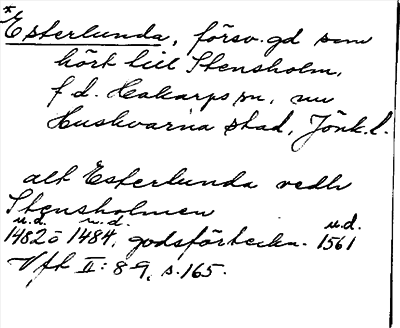 * Esterlunda, försv. gd som
hört till Stensholm,
f d. Hakarps sn, nu
Huskvarna stad, Jönk. l.
alt Esterlunda vedh
Stensholmen
u.d. u.d. u.d.
1482 o 1484, godsförteckn. 1561
Vft II: 8-9, s. 165.